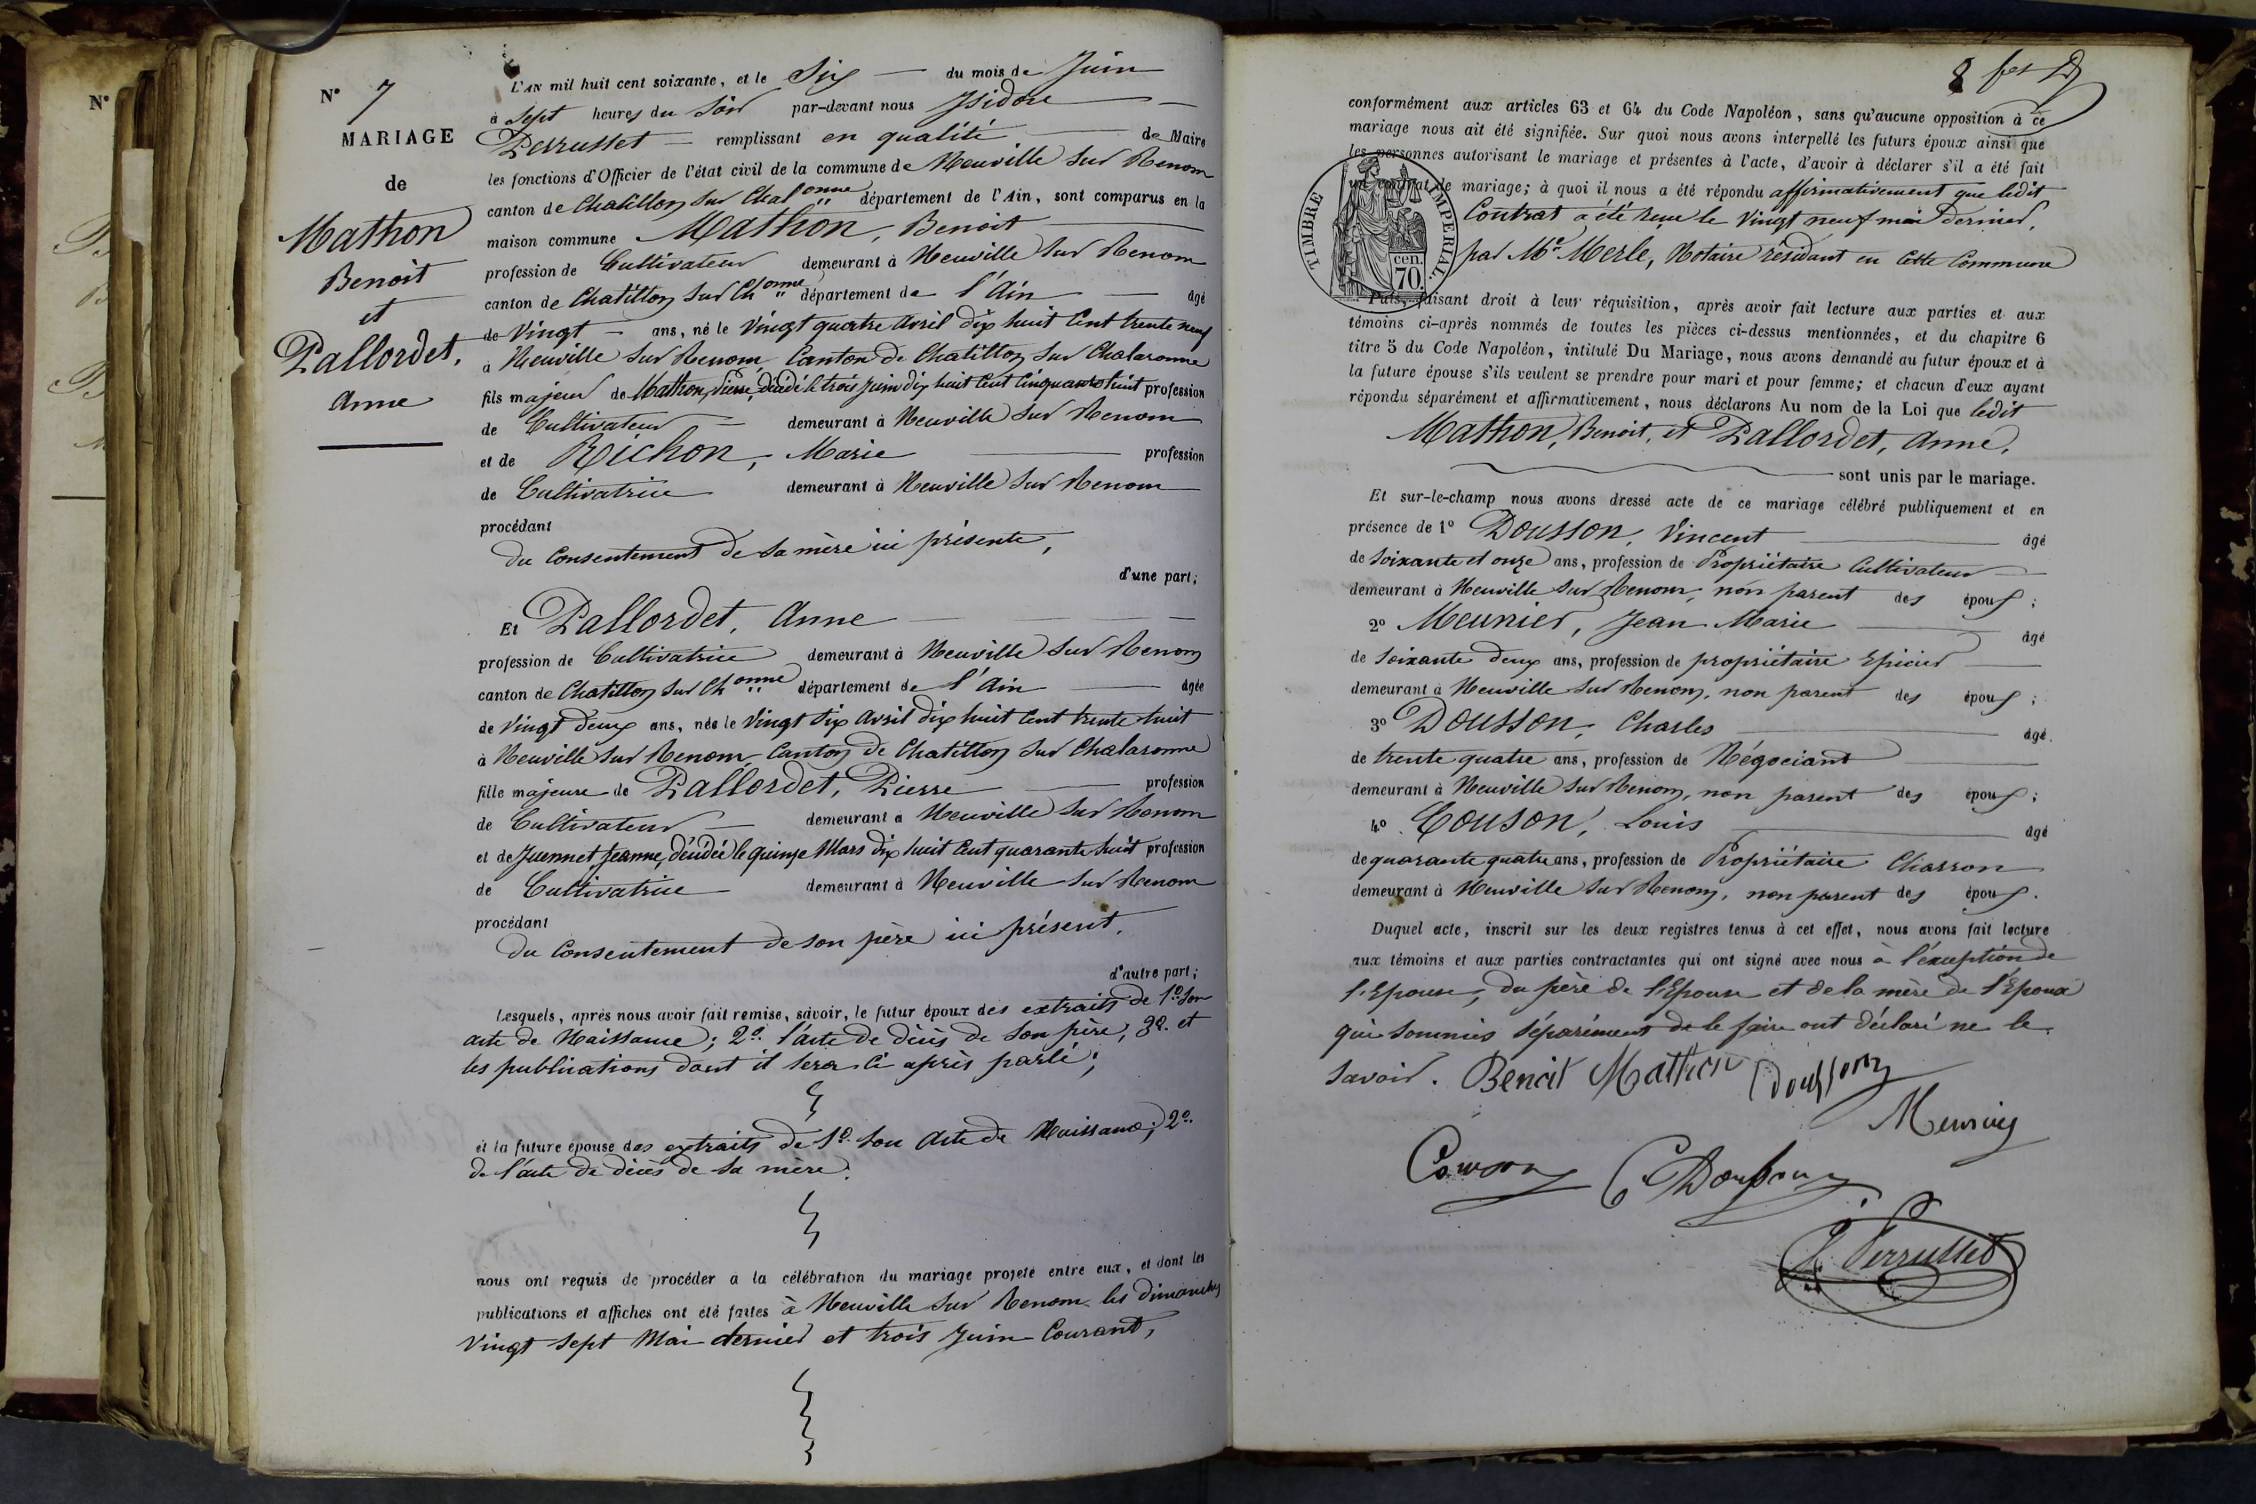 N°
N° 7
MARIAGE
de
Mathon
Benoit
et
Pallordet,
Anne
L'AN mil huit cent soixante, et le Six du mois de Juin
à Sept heures du Soir par-devant nous Isidore
Perrusset remplissant en qualité de Maire
les fonctions d'Officier de l'état civil de la commune de Neuville Sur Renom
canton de Chatillon Sur Chalonne département de l'Ain, sont comparus en la
maison commune Mathon, Benoit
profession de Cultivateur demeurant à Neuville Sur Renom
canton de Chatillon Sur Chonne département de l'Ain âgé
de Vingt ans, né le Vingt quatre Avril dix huit Cent trente neuf
à Neuville Sur Renom Canton de Chatillon Sur Chalaronne
fils majeur de Mathon, Pierre, décédé le trois Juin dix huit Cent Cinquante huit profession
de Cultivateur demeurant à Neuville Sur Renom
et de Richon, Marie profession
de Cultivatrice demeurant à Neuville Sur Renom
procédant
du Consentement de Sa mère ici présente,
d'une part;
Et Pallordet, Anne
profession de Cultivatrice demeurant à Neuville Sur Renom
canton de Chatillon Sur Chonne département de l'Ain âgée
de Vingt deux ans, née le Vingt Six Avril dix huit Cent trente huit
à Neuville Sur Renom, Canton de Chatillon Sur Chalaronne
fille majeure de Pallordet, Pierre profession
de Cultivateur demeurant à Neuville Sur Renom
et de Juennet Jeanne, décédée le quinze Mars dix huit Cent quarante huit profession
de Cultivatrice demeurant à Neuville Sur Renom
procédant
du Consentement de son père ici présent.
d'autre part;
Lesquels, après nous avoir fait remise, savoir, le futur époux des extraits de 1° Son
acte de Naissance; 2° l'acte de décès de Son père, 3° et
les publications dont il sera ci après parlé;
et la future épouse des extraits de 1° Son Acte de Naissance; 2°
de l'acte de décès de Sa mère.
nous ont requis de procéder à la célébration du mariage projeté entre eux, et dont les
publications et affiches ont été faites à Neuville Sur Renom les dimanches
Vingt Sept Mai dernier et trois Juin Courant,
8
conformément aux articles 63 et 64 du Code Napoléon, sans qu'aucune opposition à ce
mariage nous ait été signifiée. Sur quoi nous avons interpellé les futurs époux ainsi que
les personnes autorisant le mariage et présentes à l'acte, d'avoir à déclarer s'il a été fait
un contrat de mariage; à quoi il nous a été répondu affirmativement que ledit
Contrat a été reçu le Vingt neuf mai dernier,
par Me Merle, Notaire résidant en Cette Commune
TIMBRE IMPERIAL.
cen.
70.
Puis, faisant droit à leur réquisition, après avoir fait lecture aux parties et aux
témoins ci-après nommés de toutes les pièces ci-dessus mentionnées, et du chapitre 6
titre 5 du Code Napoléon, intitulé Du Mariage, nous avons demandé au futur époux et à
la future épouse s'ils veulent se prendre pour mari et pour femme; et chacun d'eux ayant
répondu séparément et affirmativement, nous déclarons Au nom de la Loi que ledit
Mathon, Benoit, et Pallordet, Anne,
sont unis par le mariage.
Et sur-le-champ nous avons dressé acte de ce mariage célébré publiquement et en
présence de 1° Dousson, Vincent âgé
de Soixante et onze ans, profession de Propriétaire Cultivateur
demeurant à Neuville Sur Renom, non parent des époux;
2° Meunier, Jean Marie âgé
de Soixante deux ans, profession de propriétaire Epicier
demeurant à Neuville Sur Renom, non parent des époux;
3° Dousson, Charles âgé
de trente quatre ans, profession de Négociant
demeurant à Neuville Sur Renom, non parent des époux;
4° Couson, Louis âgé
de quarante quatre ans, profession de Propriétaire Charron
demeurant à Neuville Sur Renom, non parent des époux.
Duquel acte, inscrit sur les deux registres tenus à cet effet, nous avons fait lecture
aux témoins et aux parties contractantes qui ont signé avec nous à l'exception de
l'Epouse, du père de l'Epouse et de la mère de l'Epoux
qui Sommés Séparément de le faire ont déclaré ne le
Savoir. Benoit Mathon Dousson
Meunier
Couson C Dousson
J. Perrusset